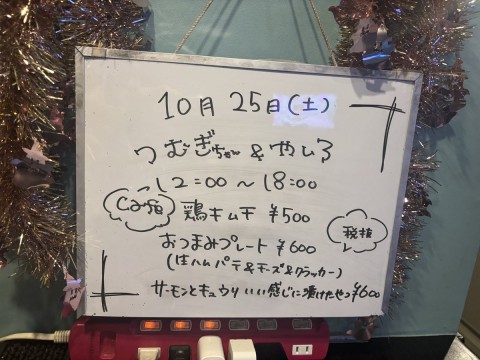 10月 25日(土)
つむぎちゃん & やしろ
12:00 ~ 18:00
鶏キムチ ¥500
税抜
おつまみプレート ¥600
(生ハムパテ&チーズ&クラッカー)
サーモンとキュウリいい感じに漬けたやつ ¥600